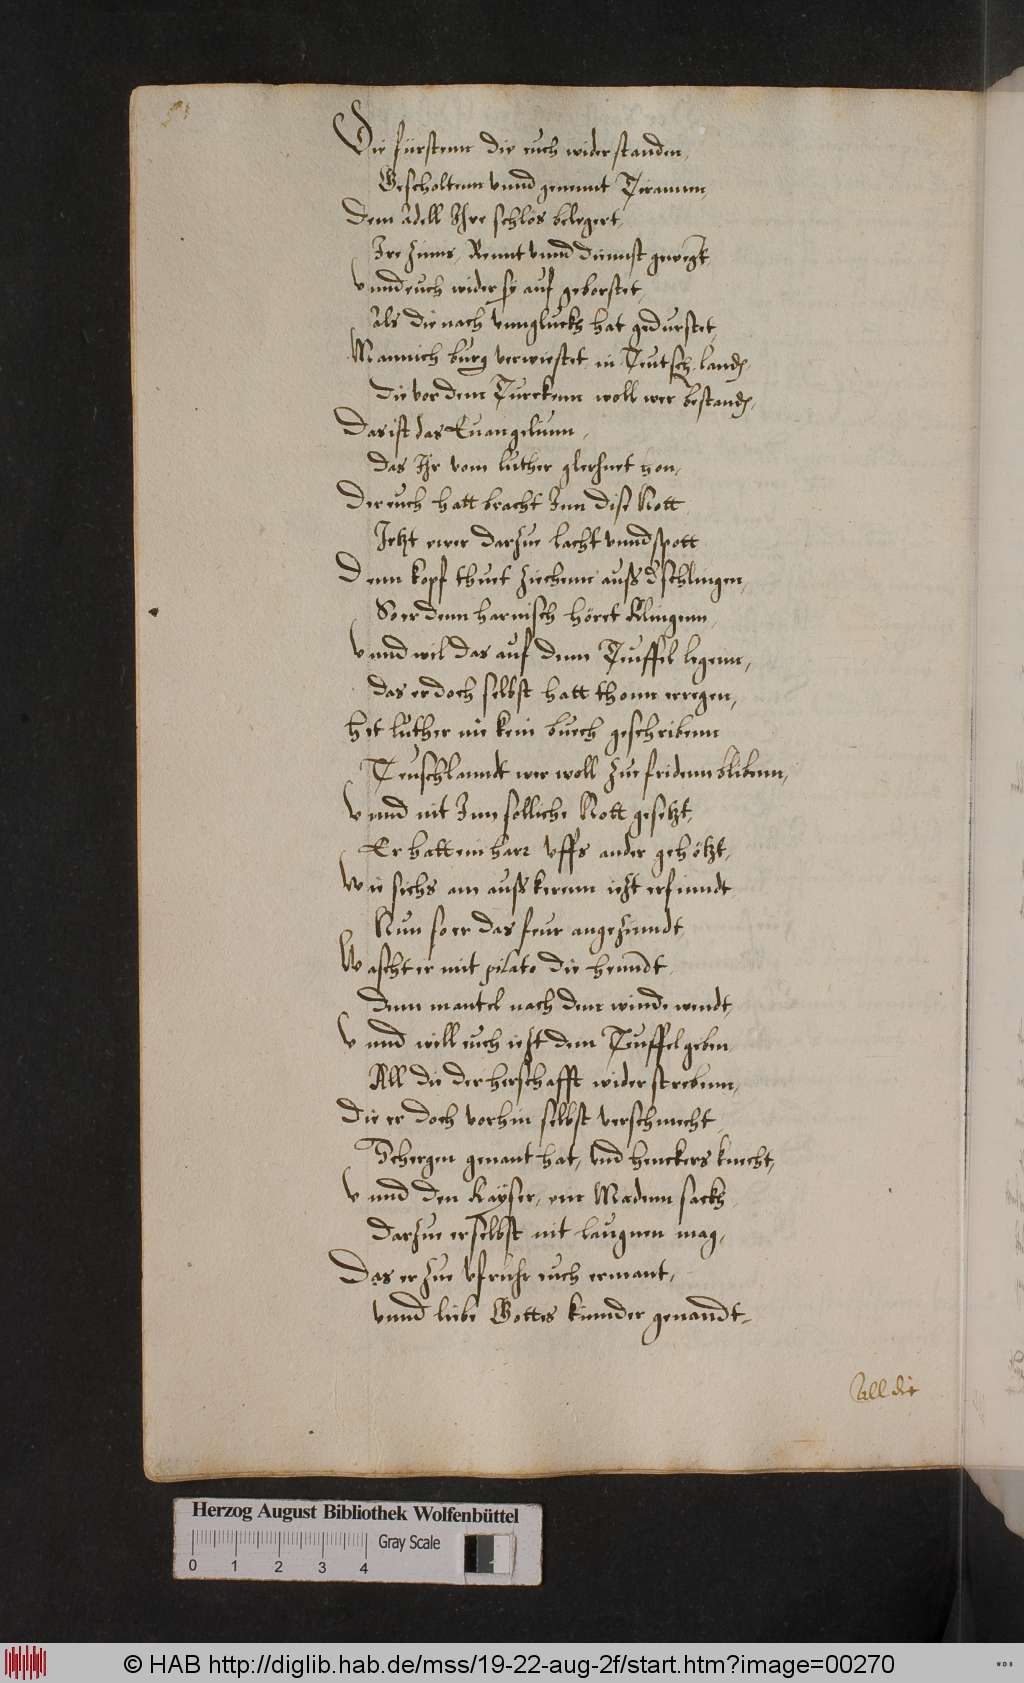 Die fürstenn die euch widerstanden,
Gescholtenn vnnd genennt Tirannen,
Dem Adell Ihre schlos belegert,
Ire Zinns, Rennt vnnd diennst gewegt,
Vnnd euch wider sy auf geborstet,
Als die nach vnngluckh hat gedurstet,
Mannich burg verwiestet in Teutsch landen
die vor dem Turckenn woll wer bestanden,
Das ist das Euangelium,
das Ihr vom luther glerhnet hon,
Der euch hatt bracht Inn dise Nott
Jetzt ewer darzue lacht vnnd spott
Denn kopf thuet ziechenn auß der schlingen,
So er denn harnisch höret Klingenn,
Vnnd wil das auf denn Teuffel legenn,
das er doch selbst hatt thonn erregen,
Het luther nie kein buech geschribenn
Teuschlanndt wer woll zue fridenn blibenn,
Vnnd nit Inn solliche Nott gesetzt,
Er hatt ein harr vffs ander gehötzt,
Wie sichs am außkerenn iezt erfinndt
Nun so er das feur angezünndt
Wascht er mit pilato die henndt
denn mantel nach dem winde wendt,
Vnnd will euch iezt dem Teuffel geben
All die der herschafft widerstrebenn,
die er doch vorhin selbst verschmecht
Schergen genant hat, vnd henckers knecht,
Vnnd den Kayser, ein Madenn sackh
darzue er selbst nit laugnen mag,
Das er zue vfruhr euch ermant,
vnnd liebe Gottes kinnder genandt
All die
Herzog August Bibliothek Wolfenbüttel
Gray Scale
0 1 2 3 4
© HAB http://diglib.hab.de/mss/19-22-aug-2f/start.htm?image=00270